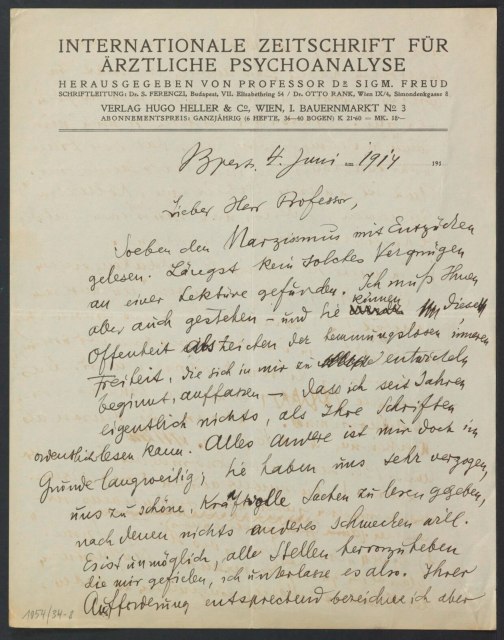 INTERNATIONALE ZEITSCHRIFT FÜR
ÄRZTLICHE PSYCHOANALYSE
HERAUSGEGEBEN VON PROFESSOR DR SIGM. FREUD
SCHRIFTLEITUNG: Dr. S. FERENCZI, Budapest, VII. Elisabethring 54 / Dr. OTTO RANK, Wien IX/4, Simondenkgasse 8
VERLAG HUGO HELLER & Co, WIEN, I. BAUERNMARKT No 3
ABONNEMENTSPREIS: GANZJÄHRIG (6 HEFTE, 36—40 BOGEN) K 21·60 = MK. 18·—
Bpest, 4. Juni am 1914 191
Lieber Herr Professor,
soeben den Narzismus mit Entzücken
gelesen. Längst kein solches Vergnügen
an einer Lektüre gefunden. Ich muß Ihnen
aber auch gestehen – und Sie können diese
Offenheit als Zeichen der hemmungslosen inneren
Freiheit, die sich in mir zu entwickeln
beginnt, auffassen – dass ich seit Jahren
eigentlich nichts, als Ihre Schriften
ordentlich lesen kann. Alles andere ist mir doch im
Grunde langweilig; Sie haben uns sehr verzogen,
uns zu schöne, kraftvolle Sachen zu lesen gegeben,
nach denen nichts anderes schmecken will.
Es ist unmöglich, alle Stellen hervorzuheben
die mir gefielen, ich unterlasse es also. Ihrer
Aufforderung entsprechend bezeichne ich aber
1954/34-8